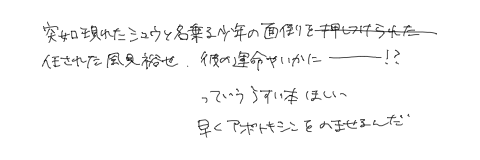 突如現れたシュウと名乗る少年の面倒を押しつけられた
任された風見裕也。彼の運命やいかに―――!?
っていううすい本ほしい
早くアポトキシンをのませるんだ